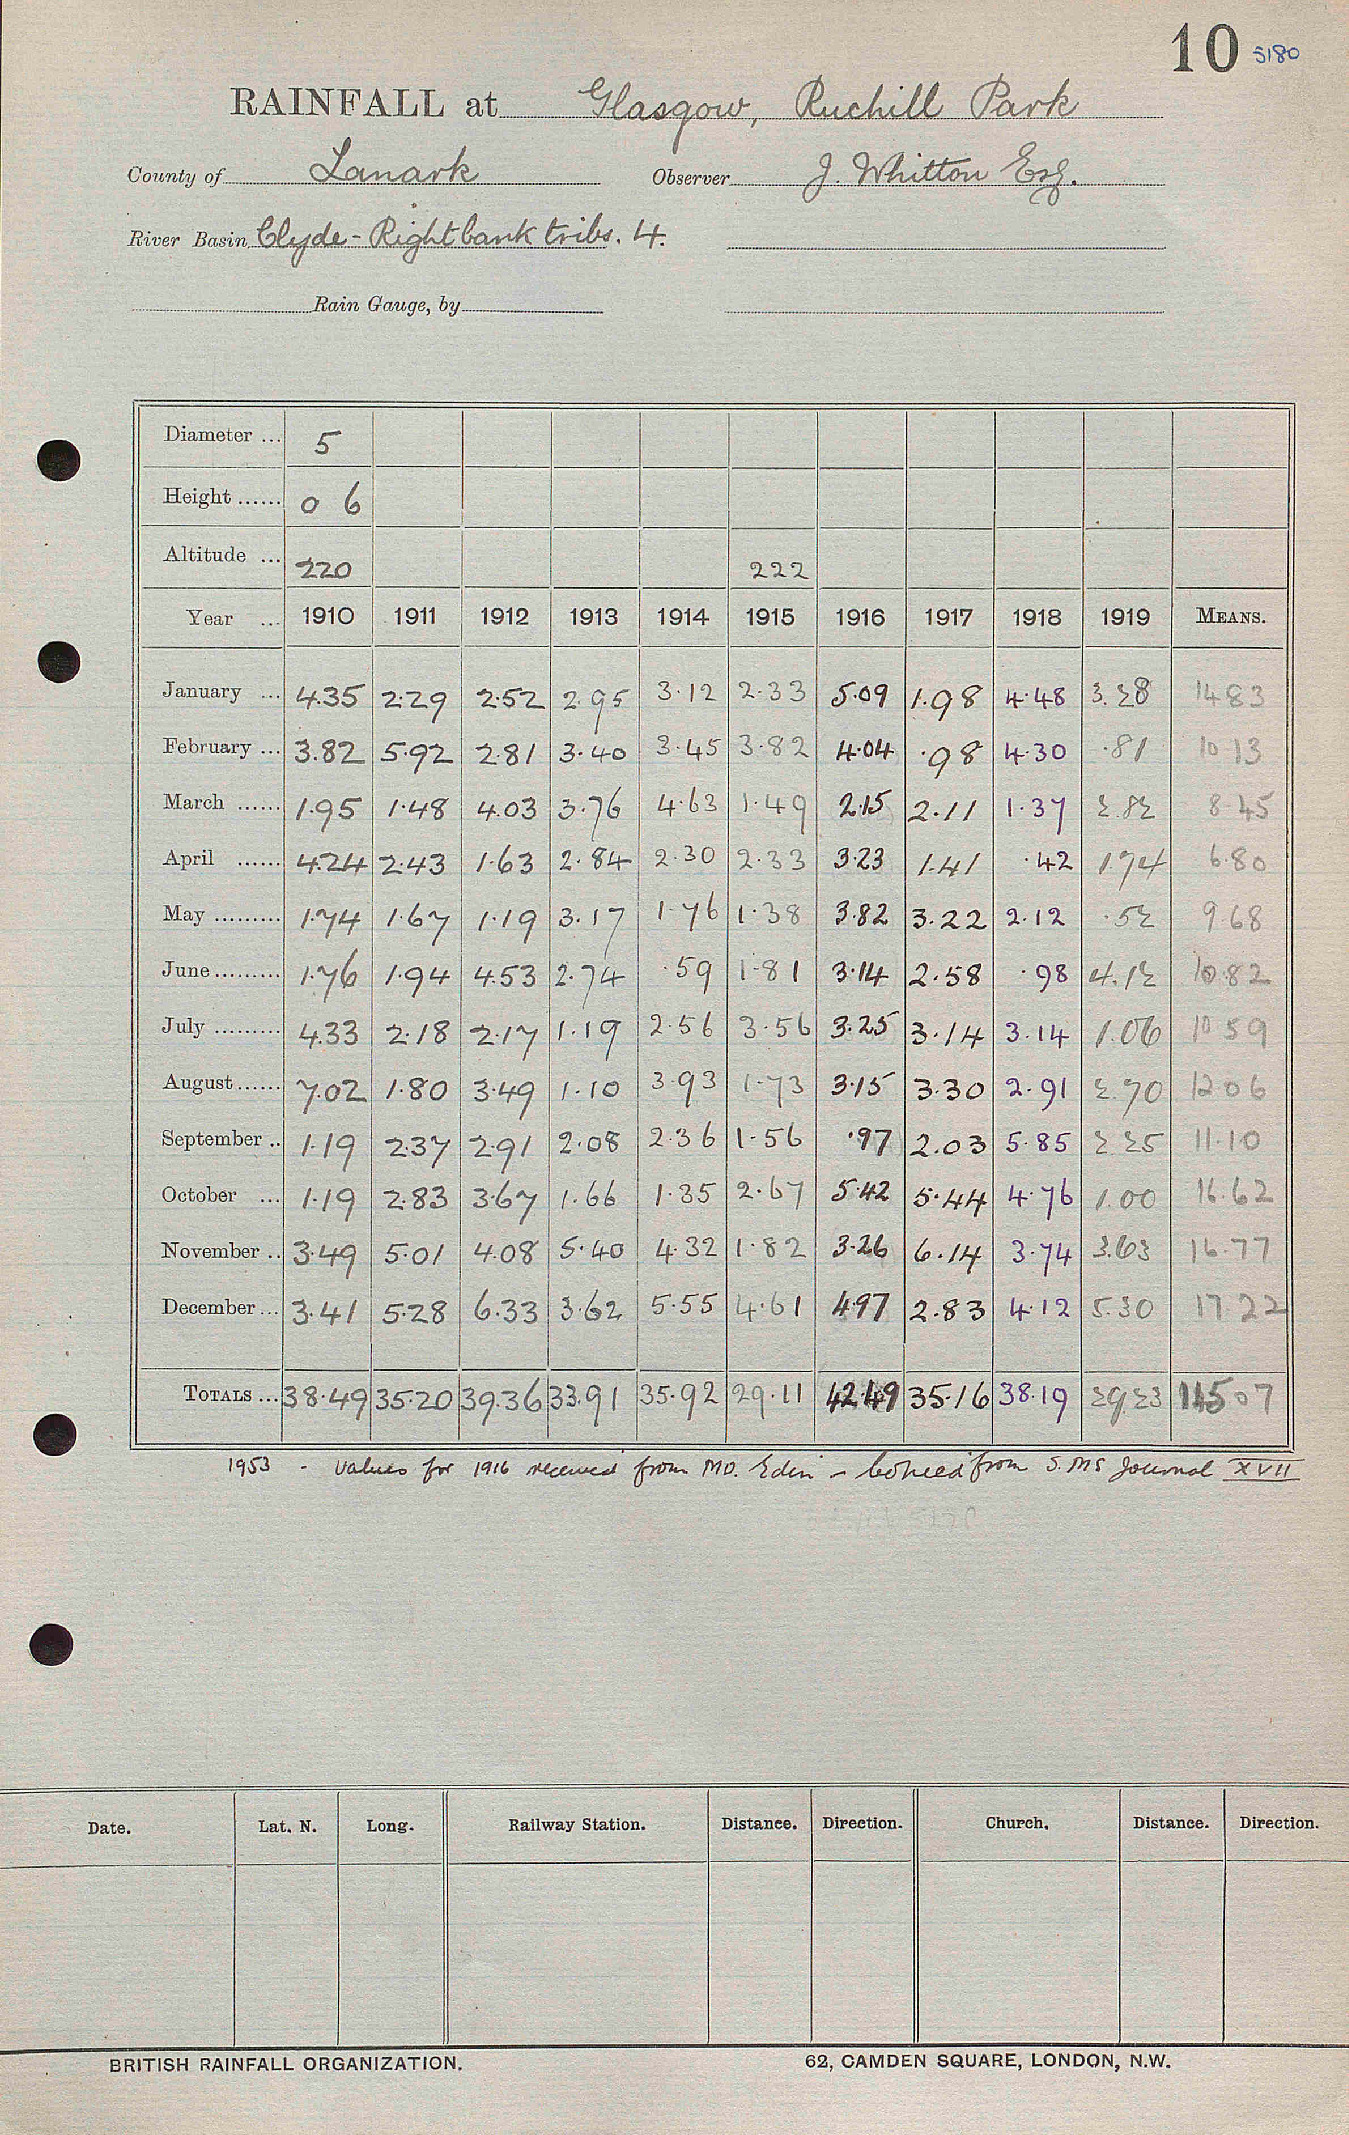 10 5180
RAINFALL at Glasgow, Ruchill Park
County of Lanark Observer J. Whitton Esq.
River Basin Clyde - Right bank tribs. 4.
Rain Gauge, by
Diameter ... 5
Height ...... 0 6
Altitude ... 220 222
Year ... 1910 1911 1912 1913 1914 1915 1916 1917 1918 1919 MEANS.
January ... 4.35 2.29 2.52 2.95 3.12 2.33 5.09 1.98 4.48 3.28 14 83
February ... 3.82 5.92 2.81 3.40 3.45 3.82 4.04 .98 4.30 .81 10 13
March ...... 1.95 1.48 4.03 3.76 4.63 1.49 2.15 2.11 1.37 2.82 8.45
April ...... 4.24 2.43 1.63 2.84 2.30 2.33 3.23 1.41 .42 1.74 6.80
May ......... 1.74 1.67 1.19 3.17 1.76 1.38 3.82 3.22 2.12 .52 9.68
June ......... 1.76 1.94 4.53 2.74 .59 1.81 3.14 2.58 .98 4.12 10.82
July ......... 4.33 2.18 2.17 1.19 2.56 3.56 3.25 3.14 3.14 1.06 10 59
August ...... 7.02 1.80 3.49 1.10 3.93 1.73 3.15 3.30 2.91 2.70 12 06
September .. 1.19 2.37 2.91 2.08 2.36 1.56 .97 2.03 5.85 2.25 11.10
October ... 1.19 2.83 3.67 1.66 1.35 2.67 5.42 5.44 4.76 1.00 16.62
November .. 3.49 5.01 4.08 5.40 4.32 1.82 3.26 6.14 3.74 3.63 16.77
December ... 3.41 5.28 6.33 3.62 5.55 4.61 4.97 2.83 4.12 5.30 17.22
TOTALS ... 38.49 35.20 39.36 33.91 35.92 29.11 42.49 35.16 38.19 29.23 07
1953 - values for 1916 received from MO. Edin - from S.MS Journal XVII
Date. Lat. N. Long. Railway Station. Distance. Direction. Church. Distance. Direction.
BRITISH RAINFALL ORGANIZATION. 62, CAMDEN SQUARE, LONDON, N.W.